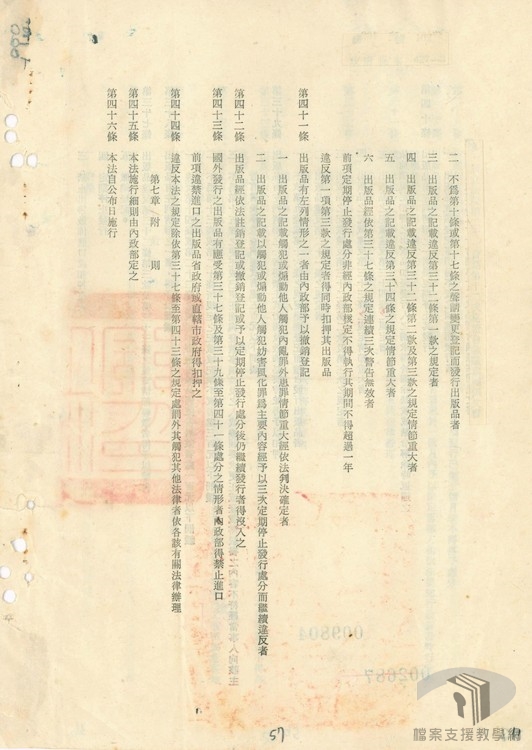 二　不爲第十條或第十七條之聲請變更登記而發行出版品者
三　出版品之記載違反第三十二條第一款之規定者
四　出版品之記載違反第三十二條第二款及第三款之規定情節重大者
五　出版品之記載違反第三十四條之規定情節重大者
六　出版品經依第三十七條之規定連續三次警告無效者
前項定期停止發行處分非經內政部核定不得執行其期間不得超過一年
違反第一項第三款之規定者得同時扣押其出版品
第四十一條　出版品有左列情形之一者由內政部予以撤銷登記
一　出版品之記載觸犯或煽動他人觸犯內亂罪外患罪情節重大經依法判決確定者
二　出版品之記載以觸犯或煽動他人觸犯妨害風化罪爲主要內容經予以三次定期停止發行處分而繼續違反者
第四十二條　出版品經依法註銷登記或撤銷登記或予以定期停止發行處分後仍繼續發行者得沒入之
第四十三條　國外發行之出版品有應受第三十七條及第三十九條至第四十一條處分之情形者內政部得禁止進口
前項違禁進口之出版品省政府或直轄市政府得扣押之
第四十四條　違反本法之規定除依第三十七條至第四十三條之規定處罰外其觸犯其他法律者依各該有關法律辦理
第七章　附　則
第四十五條　本法施行細則由內政部定之
第四十六條　本法自公布日施行
57
檔案支援教學網